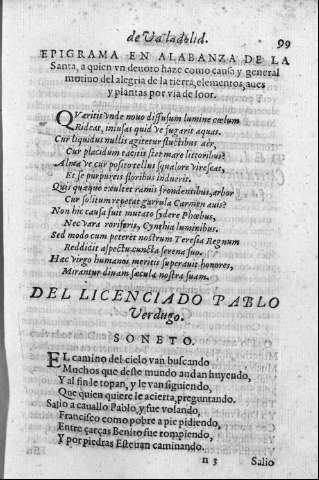 de Valladolid. 99
EPIGRAMA EN ALABANZA DE LA
Santa, a quien vn deuoto haze como causa y general
motiuo del alegria de la tierra, elementos, aues
y plantas por via de loor.
QVæritis vnde nouo diffusum lumine cœlum
Rideat, inuisas quid ve fugarit aquas.
Cur liquidus nullis agitetur fluctibus aër,
Cur placidum tacitis stet mare littoribus?
Alma ve cur posito tellus squalore virescat,
Et se purpureis floribus induerit.
Qui quæque exultet ramis frondentibus, arbor
Cur solitum repetat gurrula Carmen auis?
Non hic causa fuit mutato sydere Phœbus,
Nec vara roriferis, Cynthia luminibus.
Sed modo cum peteret nostrum Teresa Regnum
Reddidit aspectu cuncta serena suo.
Hæc virgo humanos meritis superauit honores,
Mirantur diuam sæcula nostra suam.
DEL LICENCIADO PABLO
Verdugo.
SONETO.
EL camino del cielo van buscando
Muchos que deste mundo andan huyendo,
Y al fin le topan, y le van siguiendo,
Que quien quiere le acierta, preguntando.
Salio a cauallo Pablo, y fue volando,
Francisco como pobre a pie pidiendo,
Entre çarças Benito fue rompiendo,
Y por piedras Esteuan caminando.
n 3 Salio